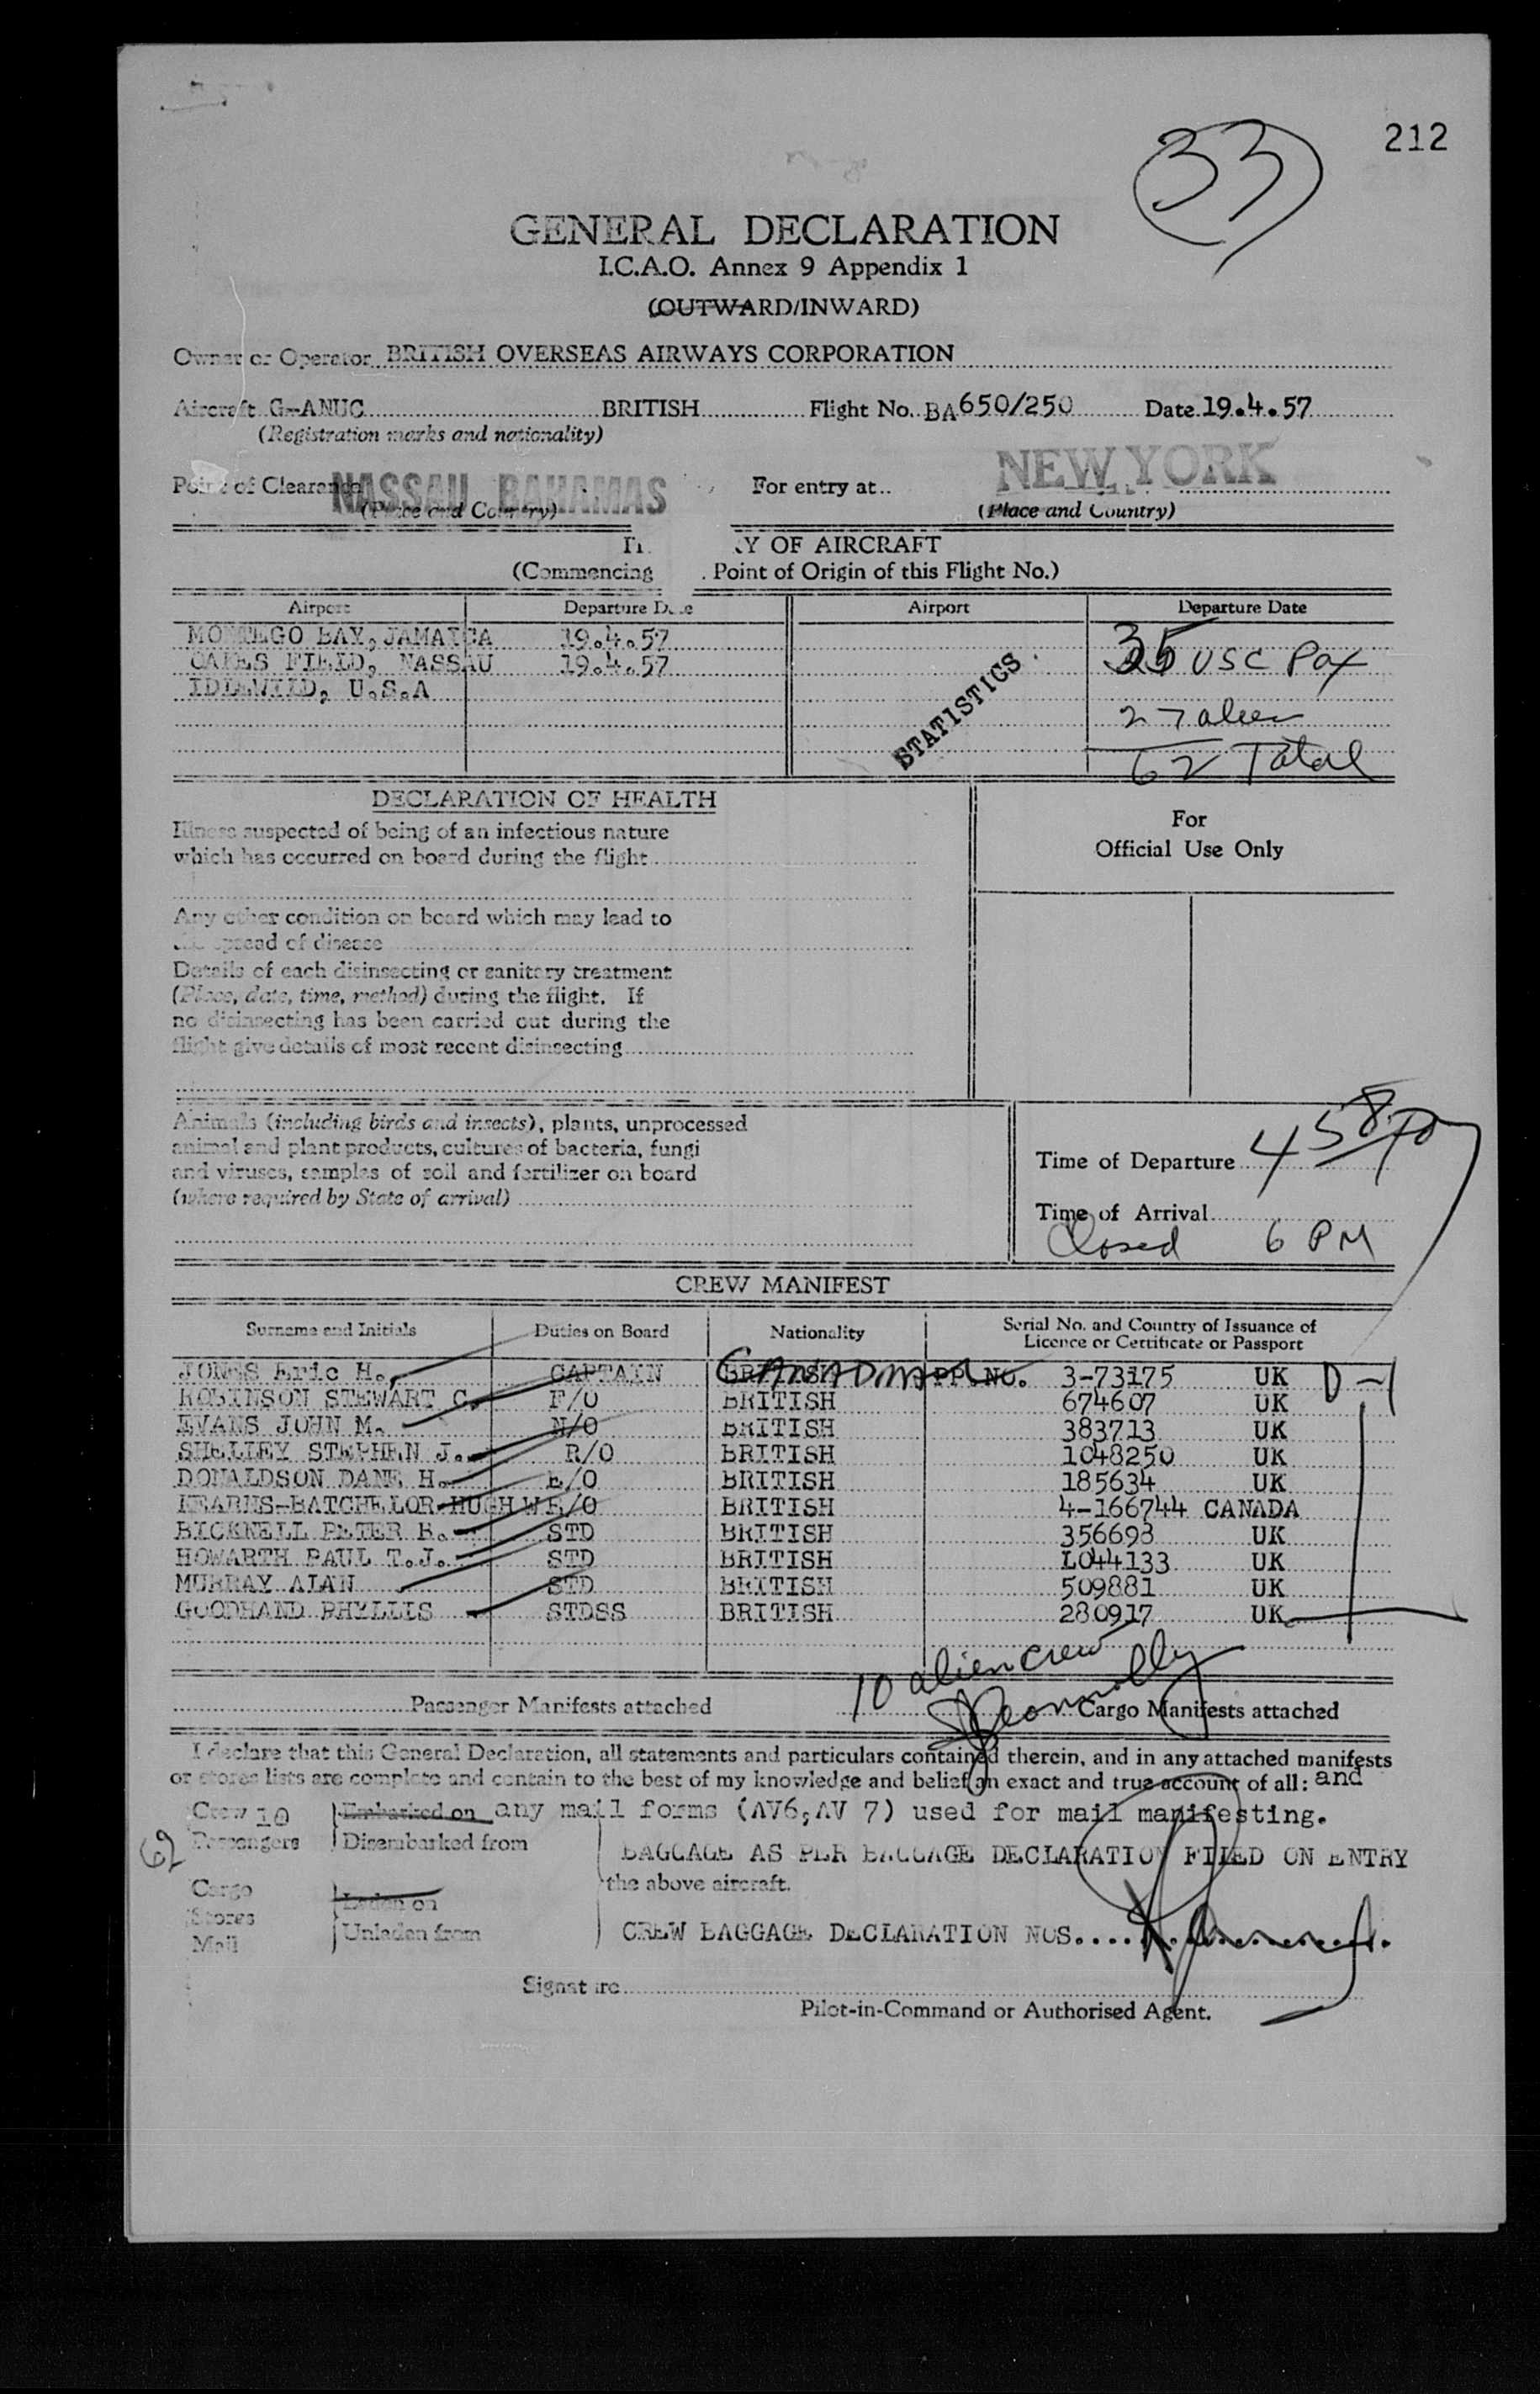 212
33
GENERAL DECLARATION
I.C.A.O. Annex 9 Appendix 1
(OUTWARD/INWARD)
Owner or Operator BRITISH OVERSEAS AIRWAYS CORPORATION
Aircraft G-ANUC BRITISH Flight No. BA650/250 Date 19.4.57
(Registration marks and nationality)
Point of Clearance NASSAU BAHAMAS For entry at NEW YORK
(Place and Country) (Place and Country)
Y OF AIRCRAFT
(Commencing Point of Origin of this Flight No.)
Airport Departure Date Airport Departure Date
MONTEGO BAY, JAMAICA 19.4.57
OAKES FIELD, NASSAU 19.4.57 35 USC Pax
IDLEWILD, U.S.A
STATISTICS 27 alien
62 Total
DECLARATION OF HEALTH
Illness suspected of being of an infectious nature
which has occurred on board during the flight
For
Official Use Only
Any other condition on board which may lead to
the spread of disease
Details of each disinsecting or sanitary treatment
(Place, date, time, method) during the flight. If
no disinsecting has been carried out during the
flight give details of most recent disinsecting
Animals (including birds and insects), plants, unprocessed
animal and plant products, cultures of bacteria, fungi
and viruses, samples of soil and fertilizer on board
(where required by State of arrival)
Time of Departure 458
Time of Arrival
Closed 6 PM
CREW MANIFEST
Surname and Initials Duties on Board Nationality Serial No. and Country of Issuance of
Licence or Certificate or Passport
JONES Eric H. CAPTAIN BRITISH CANADIAN PP.NO. 3-73175 UK D-1
ROBINSON STEWART C. F/O BRITISH 674607 UK
EVANS JOHN M. N/O BRITISH 383713 UK
SHELLEY STEPHEN J. R/O BRITISH 1048250 UK
DONALDSON DANE H. E/O BRITISH 185634 UK
KEARNS-BATCHELOR HUGH W E/O BRITISH 4-166744 CANADA
BICKNELL PETER B. STD BRITISH 356698 UK
HOWARTH PAUL T.J. STD BRITISH L044133 UK
MURRAY ALAN STD BRITISH 509881 UK
GOODHAND PHYLLIS STDSS BRITISH 280917 UK
10 alien crew
Passenger Manifests attached Cargo Manifests attached
I declare that this General Declaration, all statements and particulars contained therein, and in any attached manifests
or stores lists are complete and contain to the best of my knowledge and belief an exact and true account of all: and
Crew 10 Embarked on any mail forms (AV6, AV 7) used for mail manifesting.
62 Passengers Disembarked from BAGGAGE AS PER BAGGAGE DECLARATION FILED ON ENTRY
the above aircraft.
Cargo Laden on
Stores
Mail Unladen from CREW BAGGAGE DECLARATION NOS.
Signature
Pilot-in-Command or Authorised Agent.